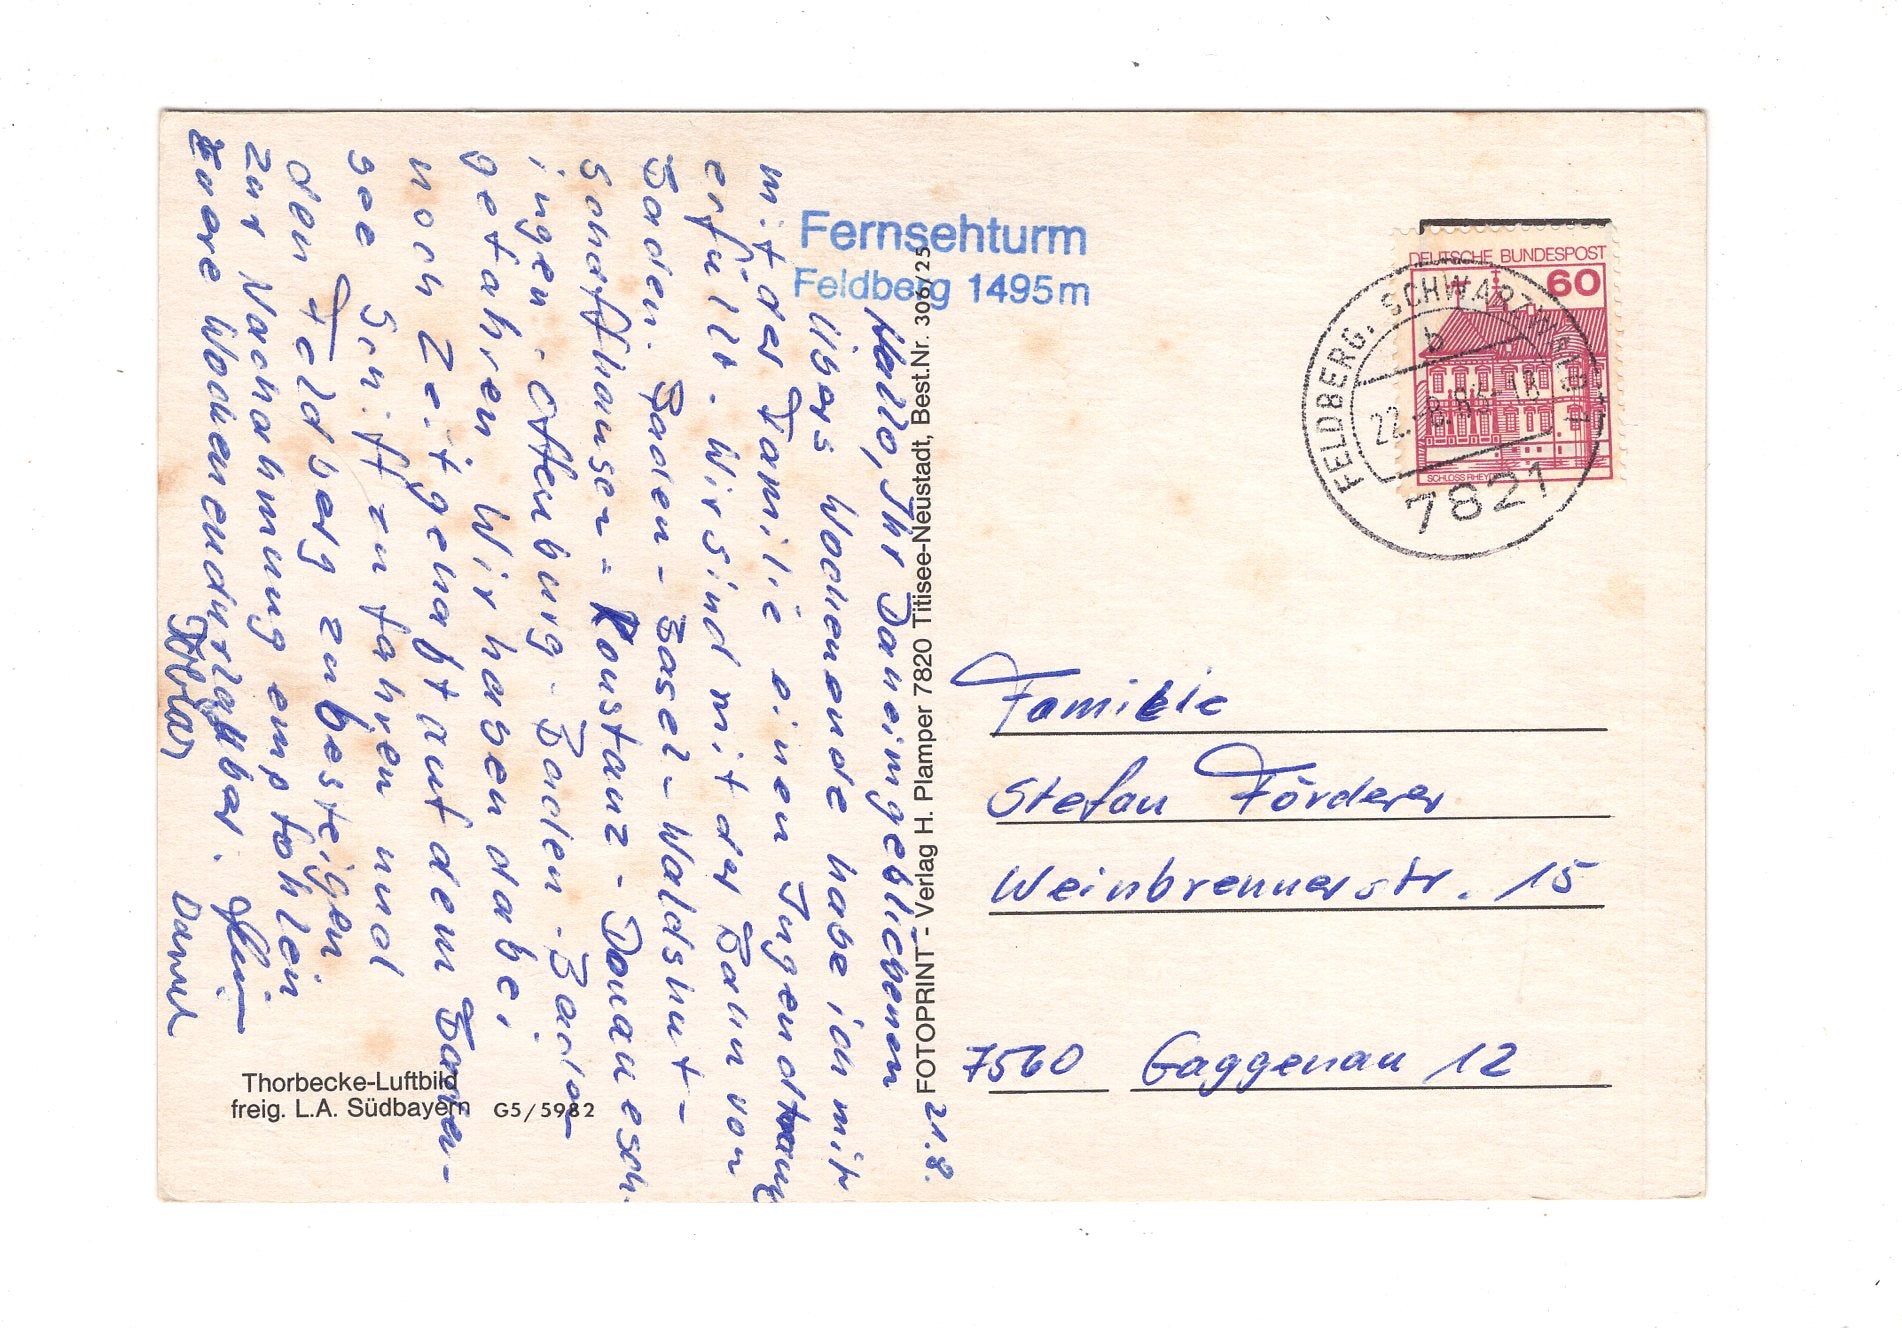 Fernsehturm
Feldberg 1495m
DEUTSCHE BUNDESPOST
60
SCHLOSS RHEYDT
FELDBERG, SCHWARZWALD
b
22.-8.83-18
7821
21.8.
Hallo, Ihr Daheimgebliebenen
Übers Wochenende habe ich mir
mit der Familie einen Jugendtraum
erfüllt. Wir sind mit der Bahn von
Baden-Baden-Basel-Waldshut-
Schaffhausen-Konstanz-Donauesch-
ingen-Offenburg-Baden-Baden
gefahren. Wir haben dabei
noch Zeit gehabt auf dem Boden-
see Schiff zu fahren und
den Feldberg zu besteigen
Zur Nachahmung empfohlen
Euere Wochenendurlauber.
Daniel
FOTOPRINT - Verlag H. Plamper 7820 Titisee-Neustadt, Best.Nr. 306/25
Familie
Stefan Förderer
Weinbrennerstr. 15
7560 Gaggenau 12
Thorbecke-Luftbild
freig. L.A. Südbayern G5/5982